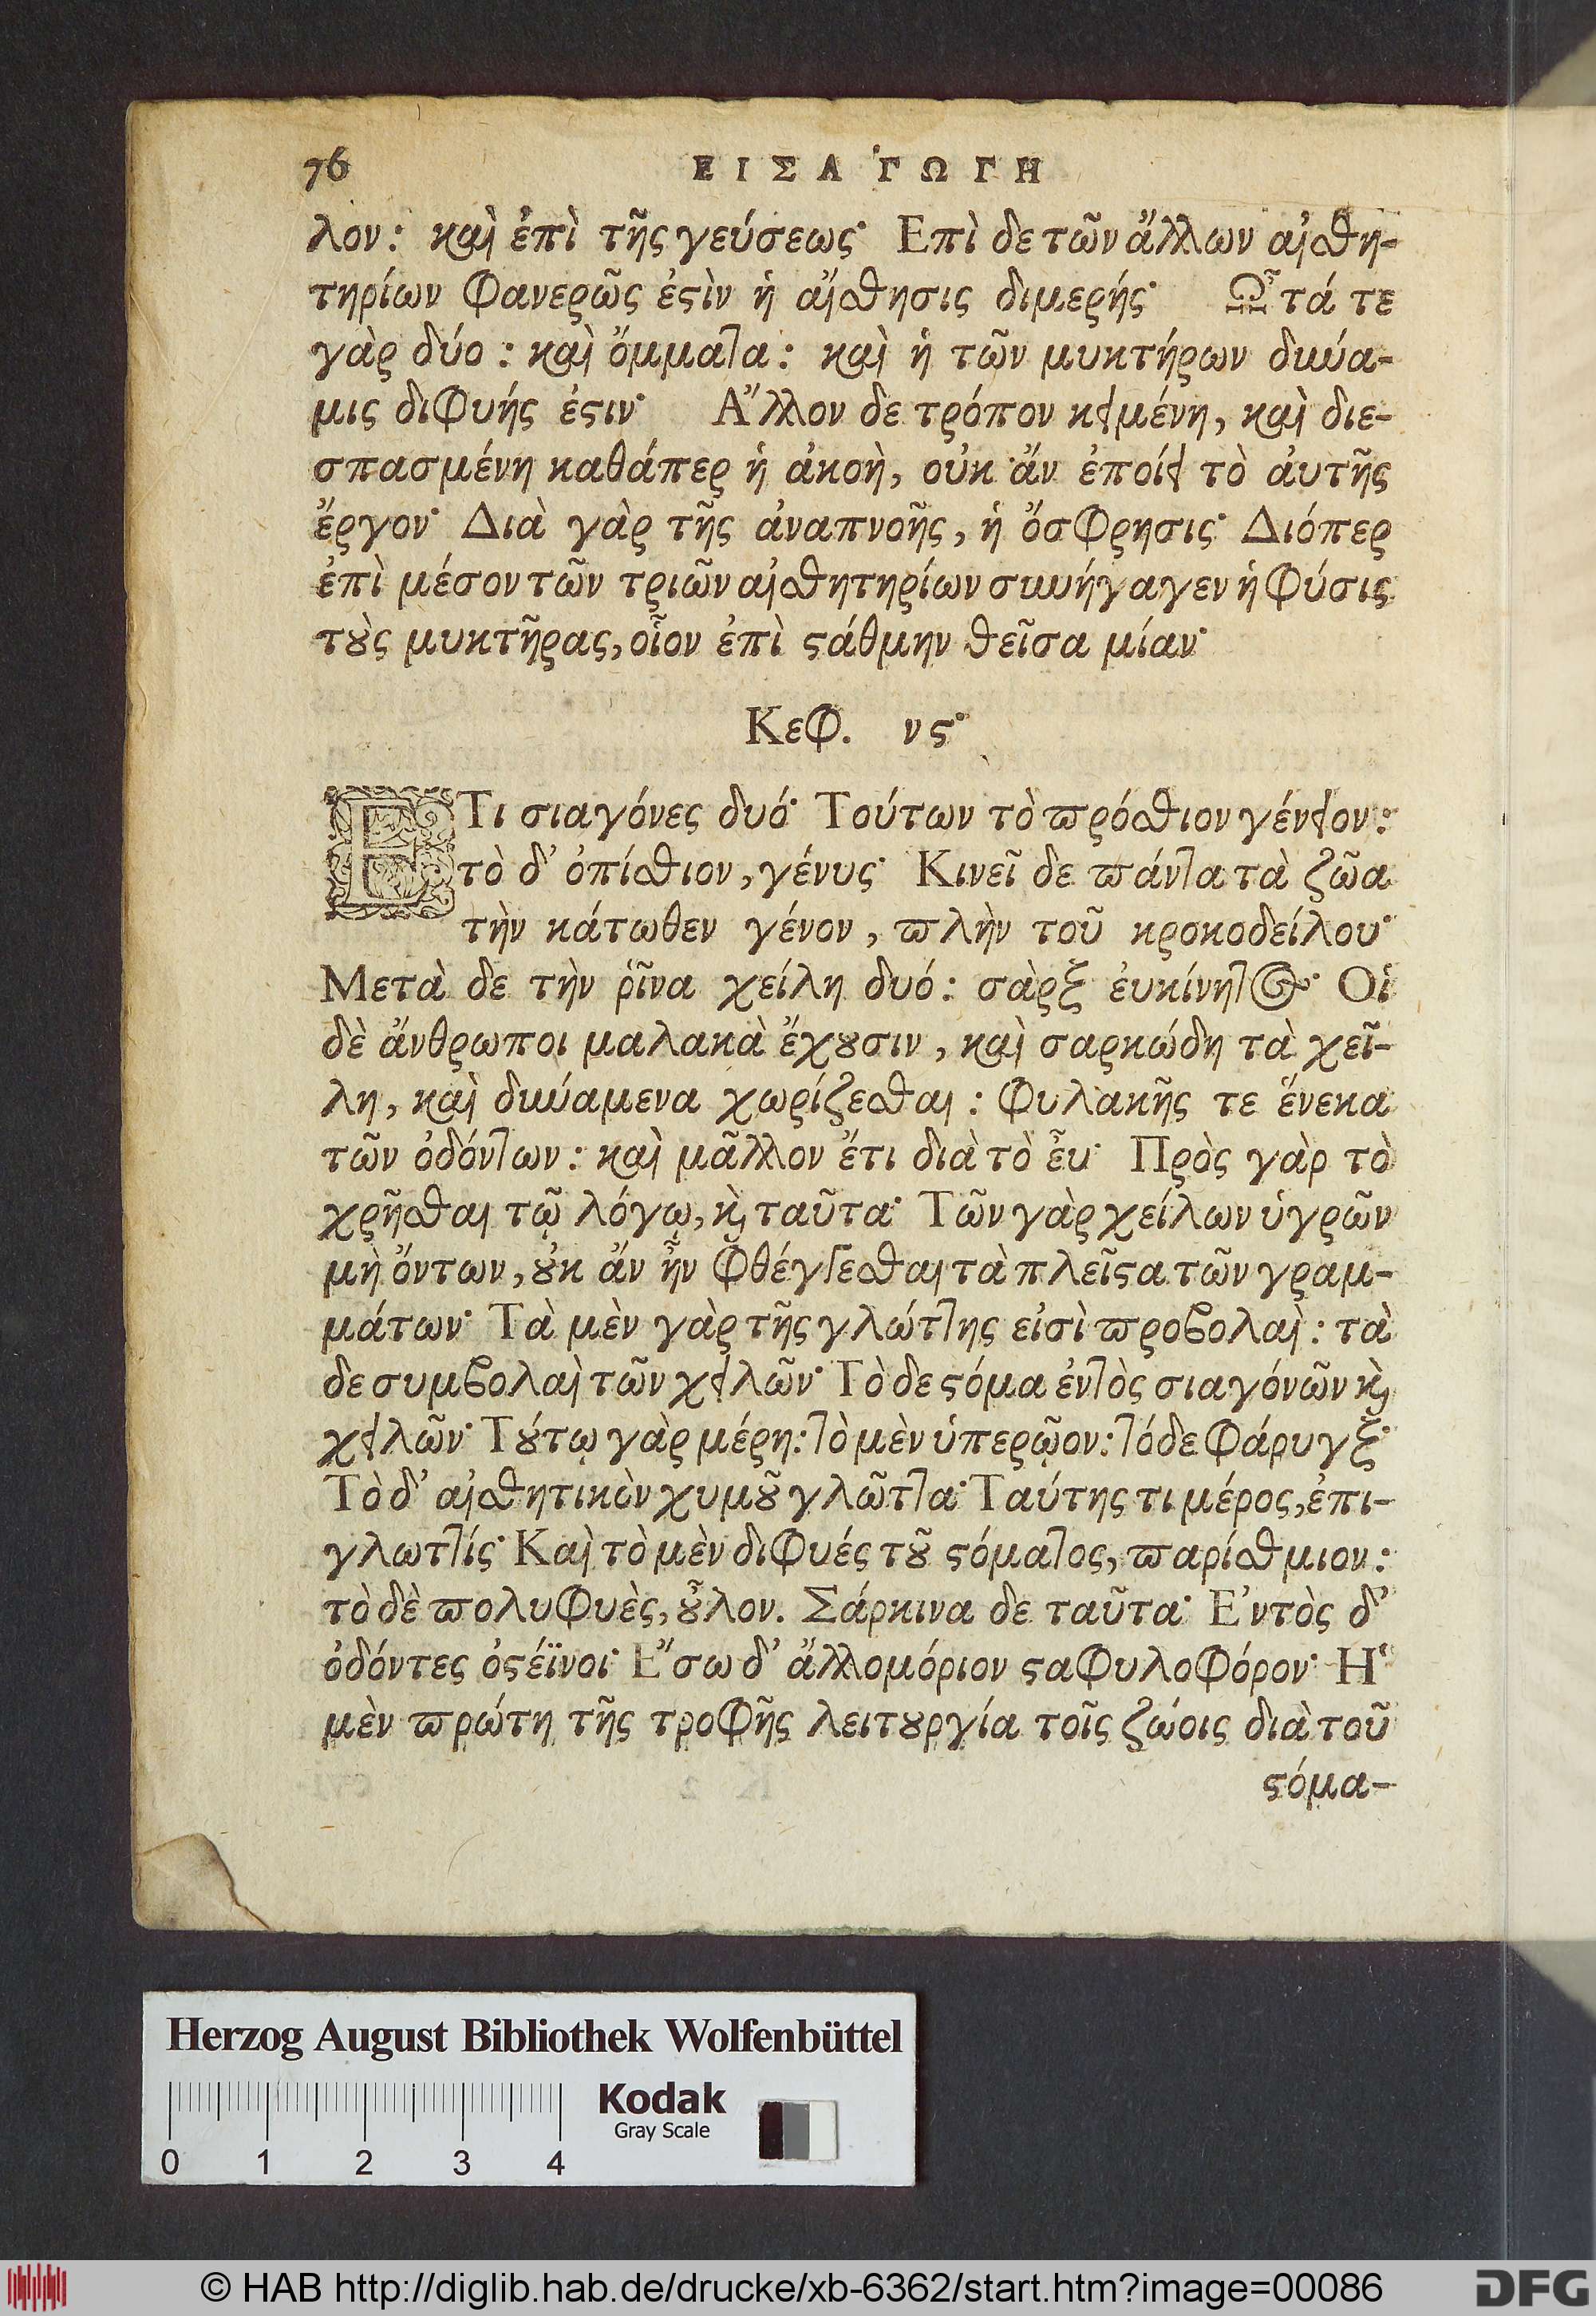 76 ΕΙΣΑΓΩΓΗ
λον: καὶ ἐπὶ τῆς γεύσεως· Επὶ δε τῶν ἄλλων αἰσθη-
τηρίων φανερῶς ἐςὶν ἡ αἴσθησις διμερής· Ὦτά τε
γὰρ δύο: καὶ ὄμματα: καὶ ἡ τῶν μυκτήρων δυνά-
μις διφυής ἐςιν· Ἄλλον δε τρόπον κειμένη, καὶ διε-
σπασμένη καθάπερ ἡ ἀκοὴ, οὐκ ἄν ἐποίει τὸ ἀυτῆς
ἔργον· Διὰ γὰρ τῆς ἀναπνοῆς, ἡ ὄσφρησις· Διόπερ
ἐπὶ μέσον τῶν τριῶν αἰσθητηρίων συνήγαγεν ἡ φύσις
τοὺς μυκτῆρας, οἷον ἐπὶ ςάθμην θεῖσα μίαν·
Κεφ. νς·
ΕΤι σιαγόνες δυό· Τούτων τὸ πρόσθιον γένειον:
τὸ δ' ὀπίσθιον, γένυς· Κινεῖ δε πάντα τὰ ζῶα
τὴν κάτωθεν γένον, πλὴν τοῦ κροκοδείλου·
Μετὰ δε τὴν ῥῖνα χείλη δυό: σὰρξ ἐυκίνητος· Οἱ
δὲ ἄνθρωποι μαλακὰ ἔχουσιν, καὶ σαρκώδη τὰ χεῖ-
λη, καὶ δυνάμενα χωρίζεσθαι: φυλακῆς τε ἕνεκα
τῶν ὀδόντων: καὶ μᾶλλον ἔτι διὰ τὸ ἖υ· Πρὸς γὰρ τὸ
χρῆσθαι τῷ λόγῳ, κὶ ταῦτα· Τῶν γὰρ χείλων ὑγρῶν
μὴ ὄντων, οὐκ ἄν ἦν φθέγγεσθαι τὰ πλεῖςα τῶν γραμ-
μάτων· Τὰ μὲν γὰρ τῆς γλώττης εἰσὶ προβολαὶ: τὰ
δε συμβολαὶ τῶν χειλῶν· Τὸ δε ςόμα ἐντὸς σιαγόνῶν κὶ
χειλῶν· Τούτῳ γὰρ μέρη: τὸ μὲν ὑπερῷον: τό δε φάρυγξ·
Τὸ δ' αἰσθητικὸν χυμοῦ γλῶττα· Ταύτης τι μέρος, ἐπι-
γλωττίς· Καὶ τὸ μὲν διφυές τοῦ ςόματος, παρίσθμιον:
τὸ δὲ πολυφυὲς, οὖλον. Σάρκινα δε ταῦτα· Ἐντὸς δ'
ὀδόντες ὀςέϊνοι· Ἔσω δ' ἄλλο μόριον ςαφυλοφόρον· Ἡ
μὲν πρώτη τῆς τροφῆς λειτουργία τοῖς ζώοις διὰ τοῦ
ςόμα-
Herzog August Bibliothek Wolfenbüttel
Kodak
Gray Scale
0 1 2 3 4
© HAB http://diglib.hab.de/drucke/xb-6362/start.htm?image=00086
DFG